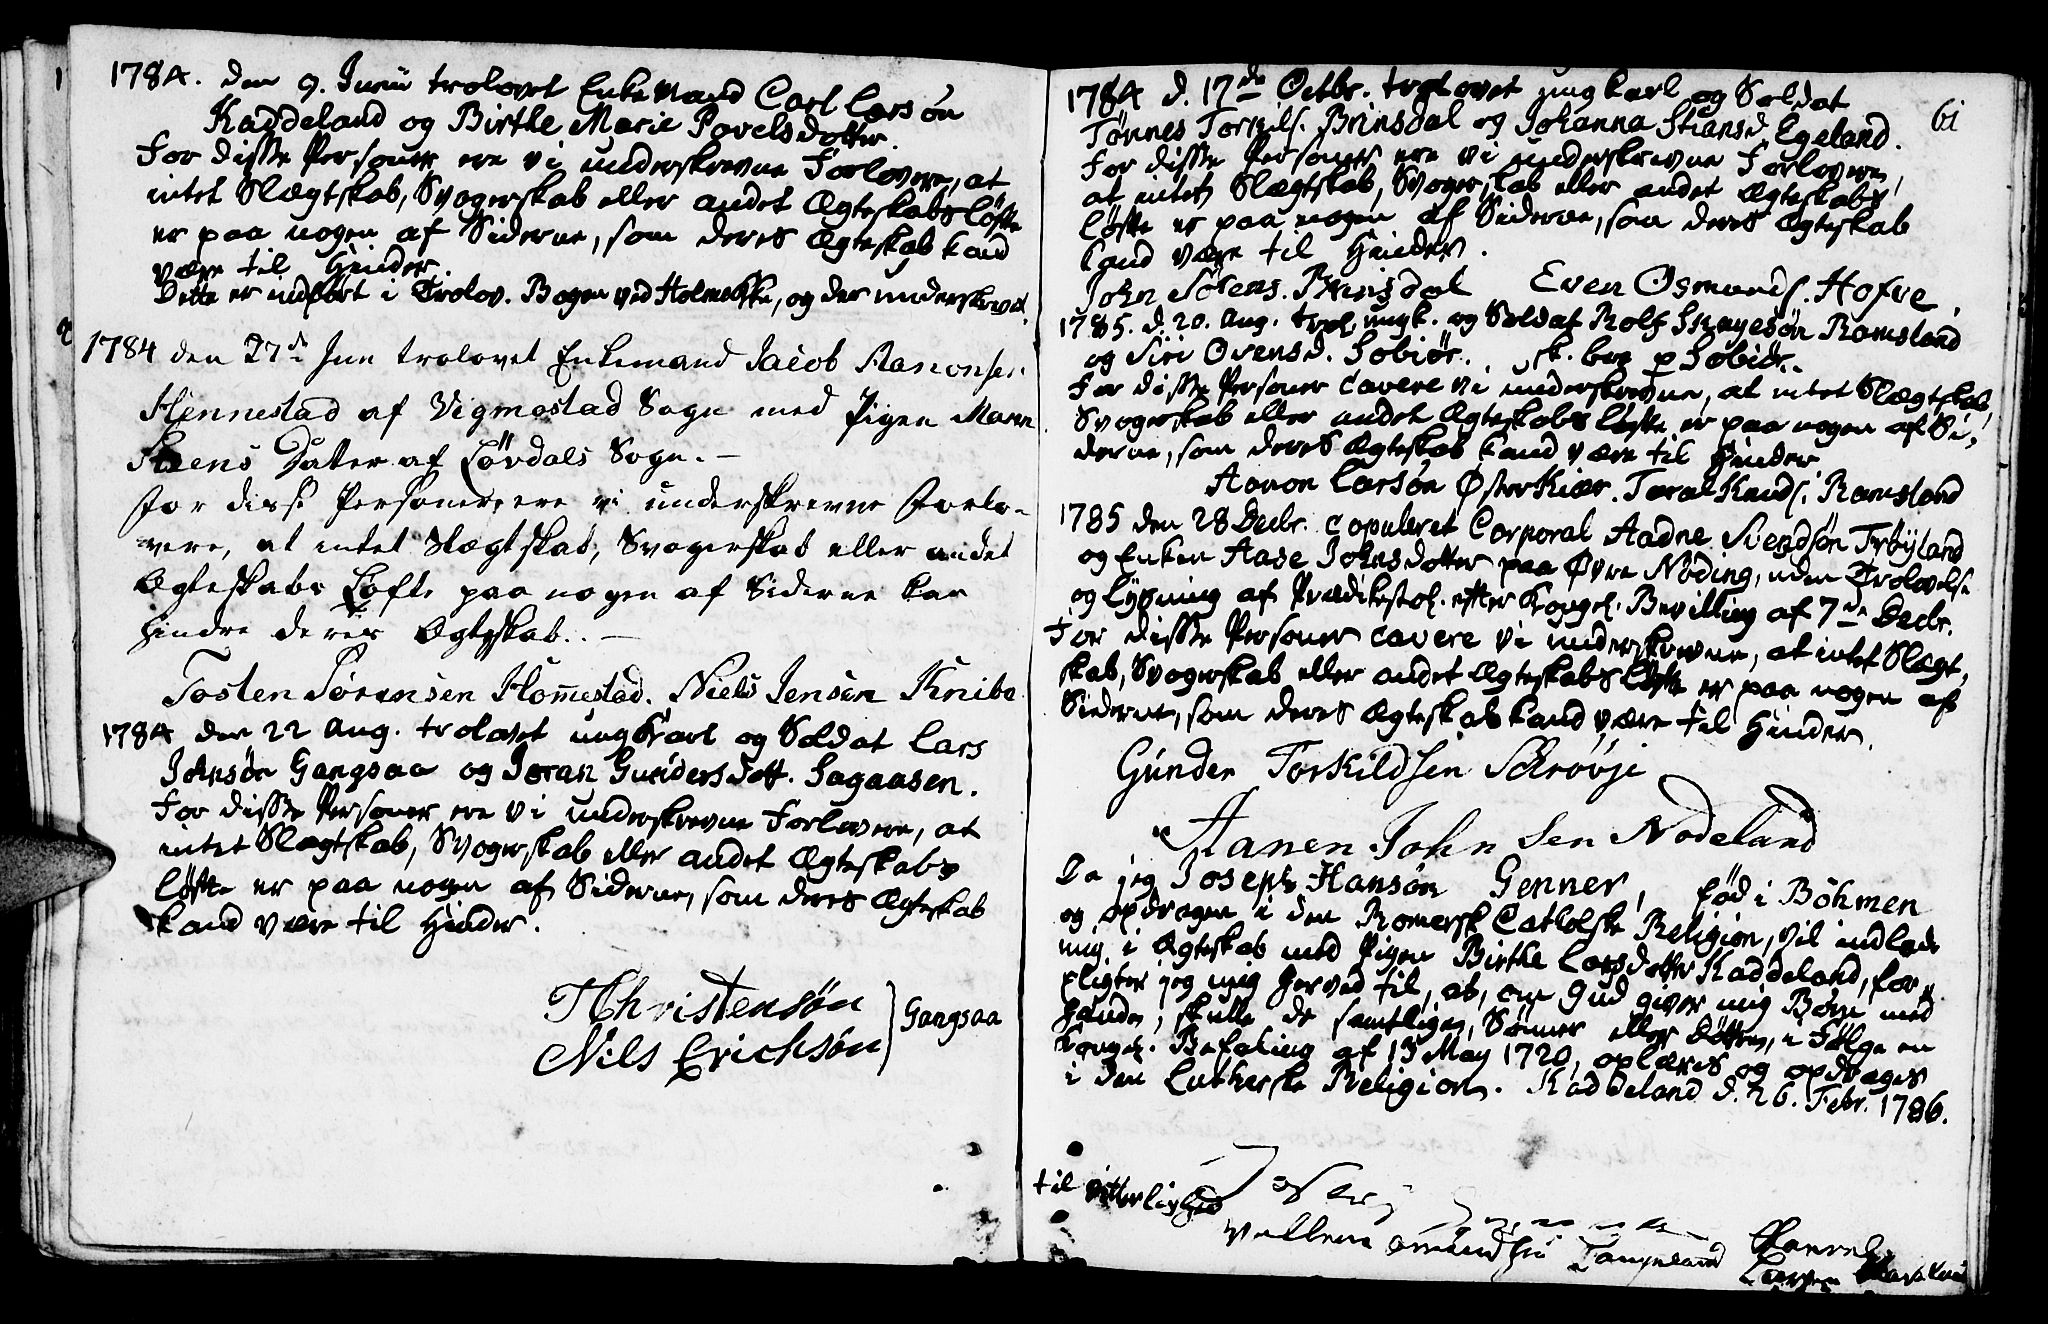 1784. den 9. Junii trolovet Enkemand Carl Larsøn
Kaddeland og Birthe Marie Povelsdotter.
For disse Personer ere vi underskrevne Forlovere, at
intet Slægtskab, Svogerskab eller andet Ægteskabs løfte
er paa nogen af Siderne, som deres Ægteskab kand
være til Hinder.
Dette er indført i Trolov. Bogen ved Holme Kirke, og der underskrevet.
1784 den 27de Jun trolovet Enkemand Jacob Aanonsen
Hennestad af Vigmostad Sogn med Pigen Maren
Steens Dater af Løvdals Sogn. —
for disse Personer, ere vi underskrevne Forlo-
vere, at intet Slægtskab, Svogerskab eller andet
Ægteskabs Løfte paa nogen af Siderne kan
hindre deres Ægteskab. —
Tosten Sørensen Hommestad. Niels Jensen Knibe
1784 den 22 Aug. trolovet ungkarl og Soldat Lars
Johnsøn Gangsaa og Joran Gundersdott. Sagaasen.
For disse Personer ere vi underskrevne Forlovere, at
intet Slægtskab, Svogerskab eller andet Ægteskabs
løfte er paa nogen af Siderne, som deres Ægteskab
kand være til Hinder.
T Christensøn
Nils Erichsøn } Gangsaa
61
1784 d. 17de Octbr. trolovet ungkarl og Soldat
Tønnes Torkels. Brinsdal og Johanna Stiansd. Egeland.
For disse Personer ere vi underskrevne Forlovere,
at intet Slægtskab, Svogerskab eller andet Ægteskabs
løfte er paa nogen af Siderne, som deres Ægteskab
kand være til Hinder.
John Sørens. Brinsdal Even Osmunds. Hofve.
1785. d. 20. Aug. trol. ungk. og Soldat Rolf Skajesøn Romsland
og Siri Ovensd. Søbiør. sk. boe p Søbiør.
For disse Personer cavere vi underskrevne, at intet Slægtskab,
Svogerskab eller andet Ægteskabs løfte er paa nogen af Si-
derne, som deres Ægteskab kand være til Hinder.
Aanon Larsøn ØsterKiær. Taral Knuds. Romsland
1785 den 28 Decbr. copuleret Corporal Aadne Svendsøn Trøyland
og Enken Aase Johnsdotter paa Øvre Nøding, uden Trolovelse
og Lysning af Prædikestol. efter Kongel. Bevilling af 7de Decbr.
For disse Personer cavere vi underskrevne, at intet Slægt-
skab, Svogerskab eller andet Ægteskabs løfte er paa nogen af
Siderne, som deres Ægteskab kand være til Hinder.
Gunder Torkildsen Schrøvje
Aanen John sen Nodeland
Da jeg Joseph Hansøn Genner, fød i Bøhmen
og opdragen i den Romersk Catholske Religion, vil indlade
mig i Ægteskab med Pigen Birthe Larsdotter Kaddeland, for-
pligter jeg mig herved til, at, om Gud giver mig Børn med
hende, skulle de samtligen, Sønner eller Døttre, i Følge en
Kongel. Befaling af 13 May 1720, oplæres og opdrages
i den Lutherske Religion. Kaddeland d. 26. Febr. 1786.
til Vitterlighed